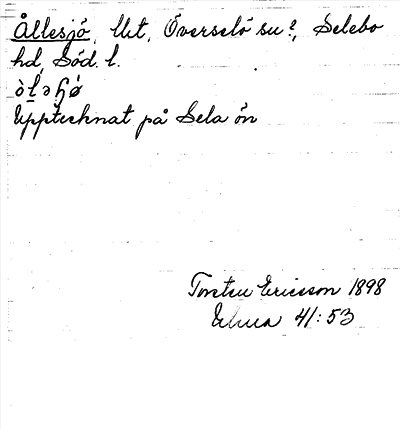 Ållesjö, Ut, Överselö sn?, Selebo
hd, Söd. l.
òl̠əɧǿ
Upptecknat på Sela ön
Torsten Ericsson 1898
41:53